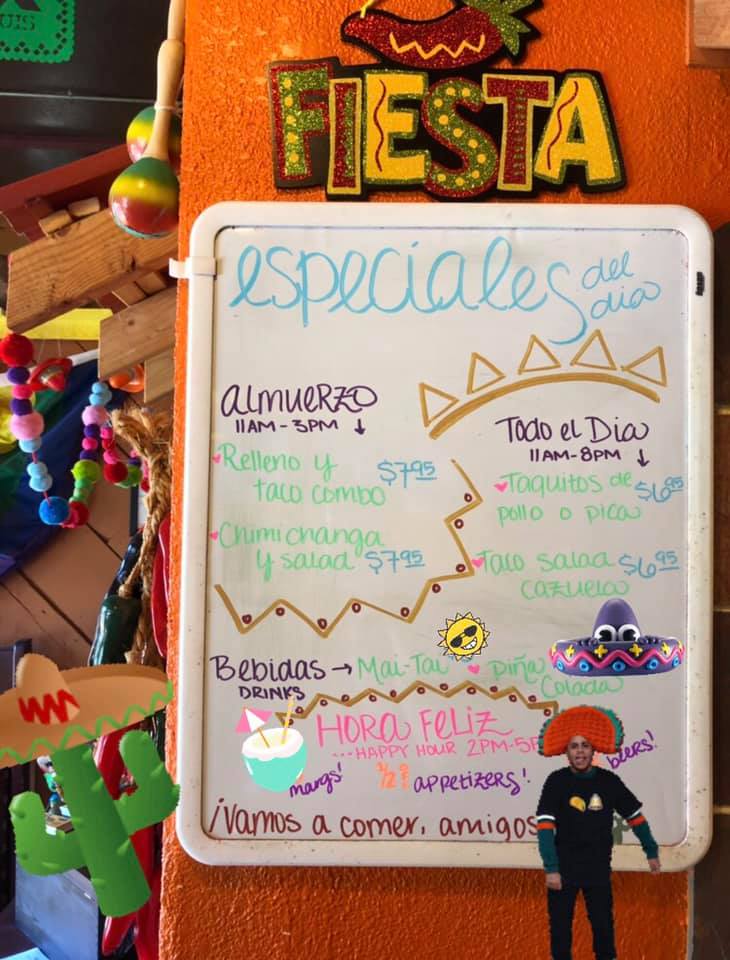 UIS
FIESTA
especiales del
dia
Almuerzo
11AM-3PM ↓
Relleno y
taco combo $7.95
Chimichanga
y salad $7.95
Todo el Dia
11AM-8PM ↓
Taquitos de
pollo o pica $6.95
Taco salad $6.95
cazuela
Bebidas → Mai-Tai piña
Colada
DRINKS
HORA FELIZ
...HAPPY HOUR 2PM-5P
margs! 1/2 off appetizers! beers!
¡Vamos a comer, amigos